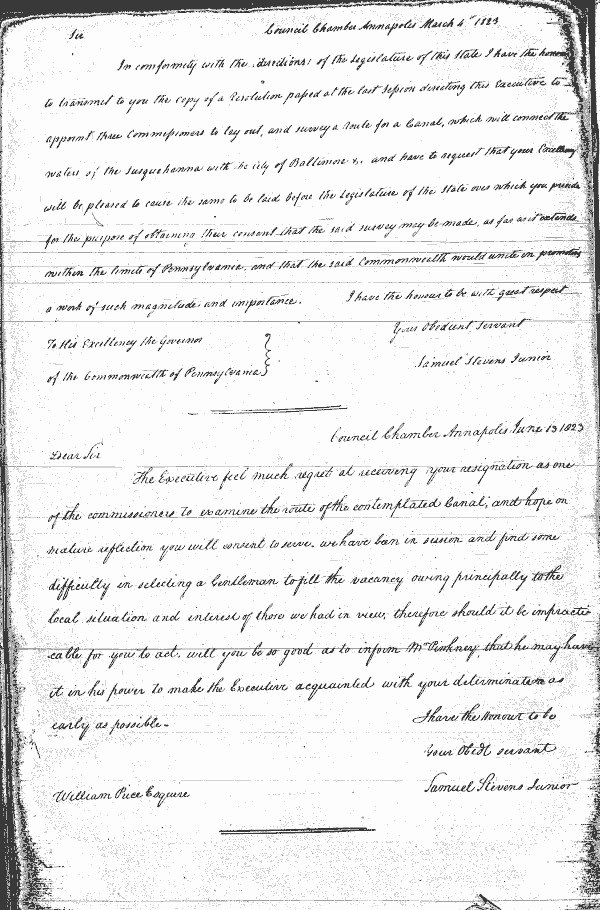 Sir Council Chamber Annapolis March 4th 1823
In conformity with the directions of the Legislature of this State I have the honour
to transmit to you the copy of a Resolution passed at the last Session directing this Executive to
appoint three Commissioners to lay out, and survey a route for a Canal, which will connect the
waters of the Susquehanna with the city of Baltimore &c. and have to request that your Excellency
will be pleased to cause the same to be laid before the Legislature of the State over which you preside
for the purpose of obtaining their consent that the said survey may be made, as far as it extends
within the limits of Pennsylvania, and that the said Commonwealth would unite in promoting
a work of such magnitude and importance. I have the honour to be with great respect
Your Obedient Servant
To His Excellency the Governor
Samuel Stevens Junior
of the Commonwealth of Pennsylvania
Council Chamber Annapolis June 13 1823
Dear Sir
The Executive feel much regret at receiving your resignation as one
of the commissioners to examine the route of the contemplated Canal, and hope on
mature reflection you will consent to serve. we have been in session and find some
difficulty in selecting a Gentleman to fill the vacancy owing principally to the
local situation and interest of those we had in view, therefore should it be impracti
cable for you to act. will you be so good as to inform Mr Pinkney, that he may have
it in his power to make the Executive acquainted with your determination as
early as possible.
I have the Honour to be
Your Obedt servant
William Price Esquire
Samuel Stevens Junior